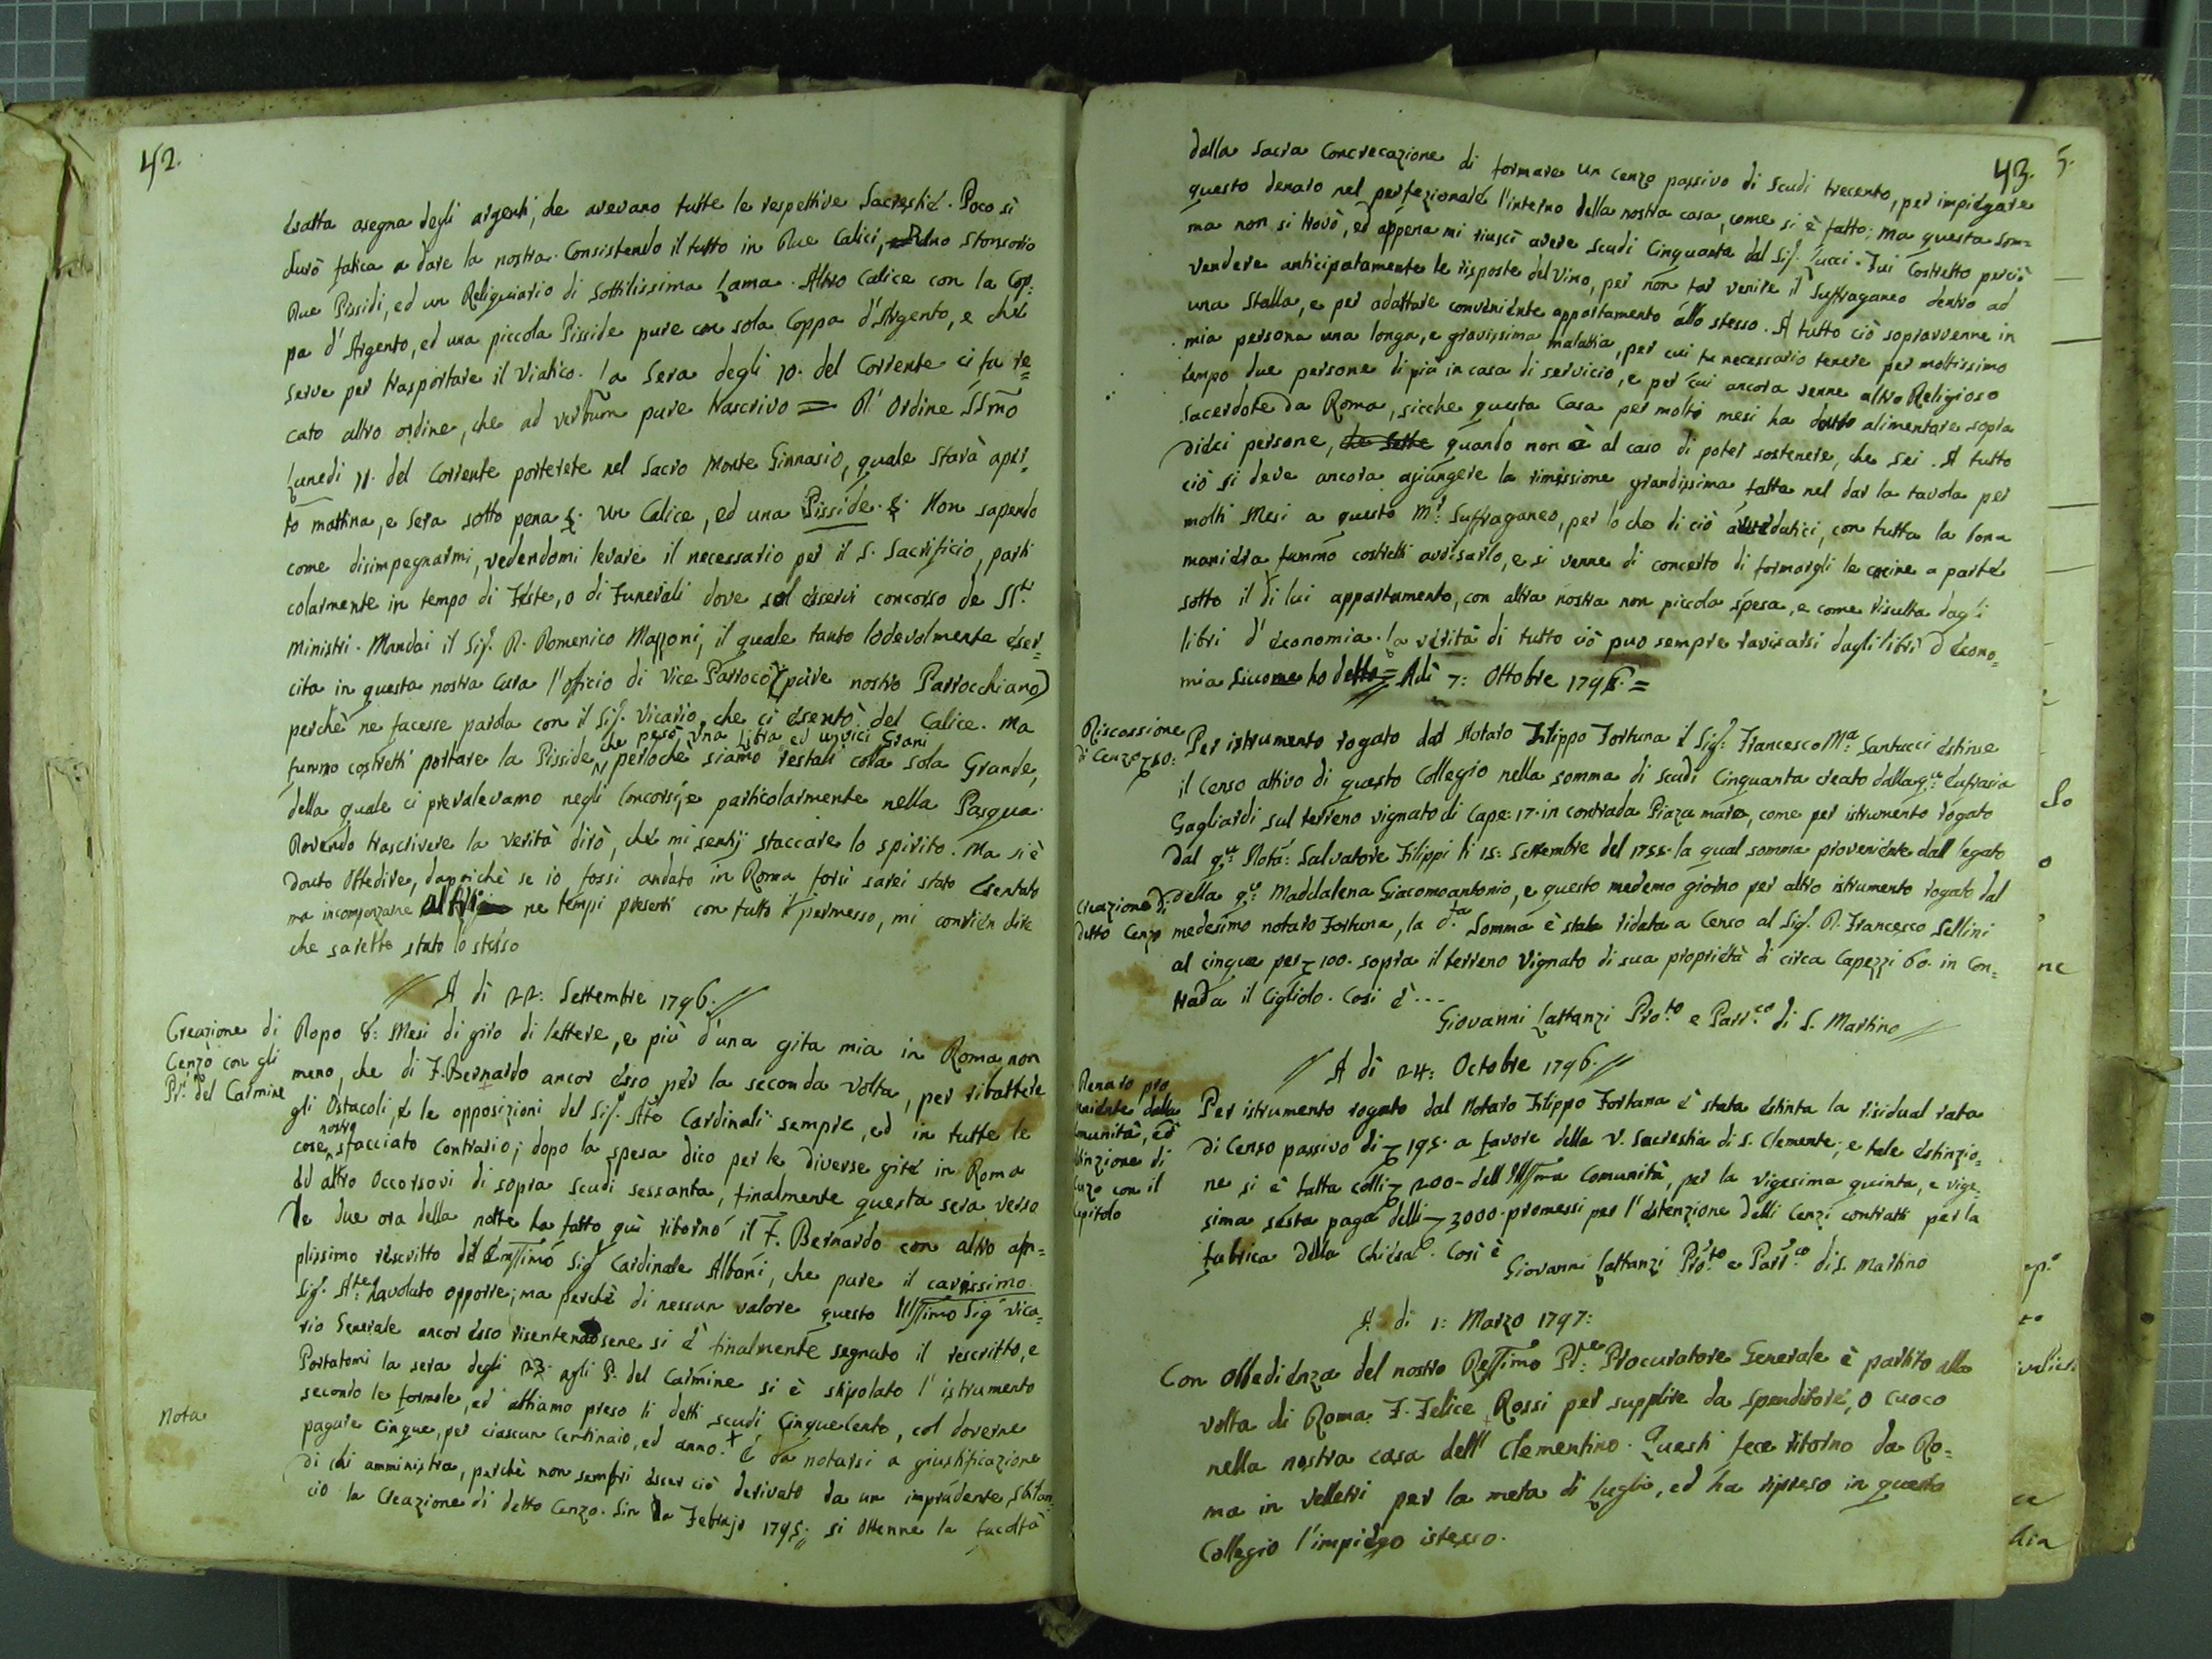 42.
esatta asegna degli argenti, che avevano tutte le respettive Sacrestie. Poco si
durò fatica a dare la nostra. Consistendo il tutto in Due Calici, Uno Stensorio
Due Pissidi, ed un Reliquiario di Sottilissima Lama. Altro Calice con la Cop:
pa d'Argento, ed una piccola Pisside pure con sola Coppa d'Argento, e che
serve per trasportare il Viatico. La Sera degli 10. del Corrente ci fu re=
cato altro ordine, che ad verbum pure trascrivo = D'Ordine SSmo
Lunedi 11. del Corrente porterete nel Sacro Monte Ginnasio, quale starà aper
to mattina, e sera sotto pena &. un Calice, ed una Pisside. &. Non sapendo
come disimpegnarmi, vedendomi levare il necessario per il S. Sacrificio, parti
colarmente in tempo di Feste, o di Funerali dove sol esservi concorso de SSri
Ministri. Mandai il Sig. D. Domenico Mazzoni, il quale tanto lodevolmente eser=
cita in questa nostra Cura l'oficio di Vice Parroco (pure nostro Parrocchiano)
perchè ne facesse parola con il Sig. Vicario, che ci esentò del Calice. Ma
che pesò una Libra ed undici Grani
fummo costretti portare la Pisside, perloche siamo restati colla sola Grande,
della quale ci prevalevamo negli Concorsi, e particolarmente nella Pasqua.
Dovendo trascrivere la verità dirò, che mi sentij staccare lo spirito. Ma si è
douto Obbedire, dapoichè se io fossi andato in Roma forsi sarei stato Esentato
ma ne tempi presenti con tutto il permesso, mi convien dire
che sarebbe stato lo stesso
// A di 22: Settembre 1796. //
Creazione di
Cenzo con gli
Pri. del Carmine
Dopo 8: Mesi di giro di lettere, e più d'una gita mia in Roma non
meno, che di F. Bernardo ancor esso per la seconda volta, per ribattere
gli Ostacoli, e le opposizioni del Sig. Abte Cardinali sempre, ed in tutte le
nostre
cose sfacciato Contrario; dopo la spesa dico per le diverse gite in Roma
ed altro Occorsovi di sopra scudi sessanta, finalmente questa sera verso
le due ora della notte ha fatto quì ritorno il F. Bernardo con altro am=
plissimo rescritto del Emssimo Sig Cardinale Albani, che pure il carissimo
Sig. Abte ha voluto opporre; ma perchè di nessun valore questo Illssimo Sig Vica=
rio Generale ancor esso risentendosene si è finalmente segnato il rescritto, e
Portatomi la sera degli 23. agli P. del Carmine si è stipolato l'istrumento
secondo le formole, ed abbiamo preso li detti scudi Cinquecento, col doverne
pagare Cinque, per ciascun Centinaio, ed anno. + È da notarsi a giustificazione
Nota
di chi amministra, perchè non sembri esser ciò derivato da un imprudente,
cio la Creazione di detto Cenzo. Sin da Febrajo 1795., si ottenne la facoltà
43.
dalla Sacra Concrecazione di formare un cenzo passivo di Scudi trecento, per impiegare
questo denaro nel perfezionare l'interno della nostra casa, come si è fatto; Ma questa som=
ma non si trovò, ed appena mi riuscì avere scudi Cinquanta dal Sig. Lucci. Fui Costretto perciò
vendere anticipatamente le risposte del Vino, per non far venire il Suffraganeo dentro ad
una Stalla, e per adattare conveniente appartamento allo stesso. A tutto ciò sopravvenne in
mia persona una longa, e gravissima malattia, per cui fu necessario tenere per moltissimo
tempo due persone di più in casa di servicio, e per cui ancora venne altro Religioso
Sacerdote da Roma, sicche questa Casa per molti mesi ha douto alimentare sopra
dieci persone, che sette quando non è al caso di poter sostenere, che sei. A tutto
ciò si deve ancora agiungere la rimessione grandissima fatta nel dar la tavola per
molti Mesi a questo Mr: Suffraganeo, per lo che di ciò avvedutici, con tutta la bona
maniera fummo costretti avvisarlo, e si venne di concerto di formargli le cucine a parte
sotto il di lui appartamento, con altra nostra non piccola spesa, e come risulta dagli
libri d'economia. La verità di tutto ciò può sempre ravisarsi dagli libri d'econo=
mia siccome ho detto = Adì 7: Ottobre 1796. =
Discassione
di Cenzo
Per istrumento rogato dal Notaro Filippo Fortuna il Sig: Francesco Ma Santucci estinse
il Censo attivo di questo Collegio nella somma di scudi Cinquanta creato dalla qm: Eufrasia
Gagliardi sul terreno vignato di Cape: 17. in contrada Piaza mara, come per istrumento rogato
dal qm: Nota: Salvatore Filippi li 15: Settembre del 1755. la qual somma proveniente dall legato
Creazione di
detto Cenzo
della qm: Maddalena Giacomoantonio, e questo medemo giorno per altro istrumento rogato dal
medesimo notaro Fortuna, la dta. Somma è stata ridata a Censo al Sig. D. Francesco Sellini
al cinque per 100. sopra il terreno Vignato di sua proprietà di circa Capezzi 60. in Con=
trada il Cigliolo. Cosi è ...
Giovanni Lattanzi Proto e Parrco di S. Martino //
// A di 24: Octobre 1796. //
Denaro pro
veniente dalla
Comunità, ed
Estinzione di
Cenzo con il
Capitolo
Per istrumento rogato dal Notaro Filippo Fortuna è stata estinta la risidual rata
di Censo passivo di 195. a favore della V. Sacrestia di S. Clemente; e tale Estinzio=
ne si è fatta colli 200 - dell'Illssma Comunità, per la vigesima quinta, e vige=
sima sesta paga delli 3000. promessi per l'estenzione delli Cenzi contratti per la
fabrica della Chiesa. Così è Giovanni Lattanzi Proto e Parrco di S. Martino
A di 1: Marzo 1797:
Con Obbedienza del nostro Ressimo Pre: Procuratore Generale è partito alla
volta di Roma F. Felice Rossi per supplire da Spenditore, o Cuoco
nella nostra casa dell' Clementino. Questi fece ritorno da Ro=
ma in Velletri per la meta di Luglio, ed ha ripreso in questo
Collegio l'impiego istesso.